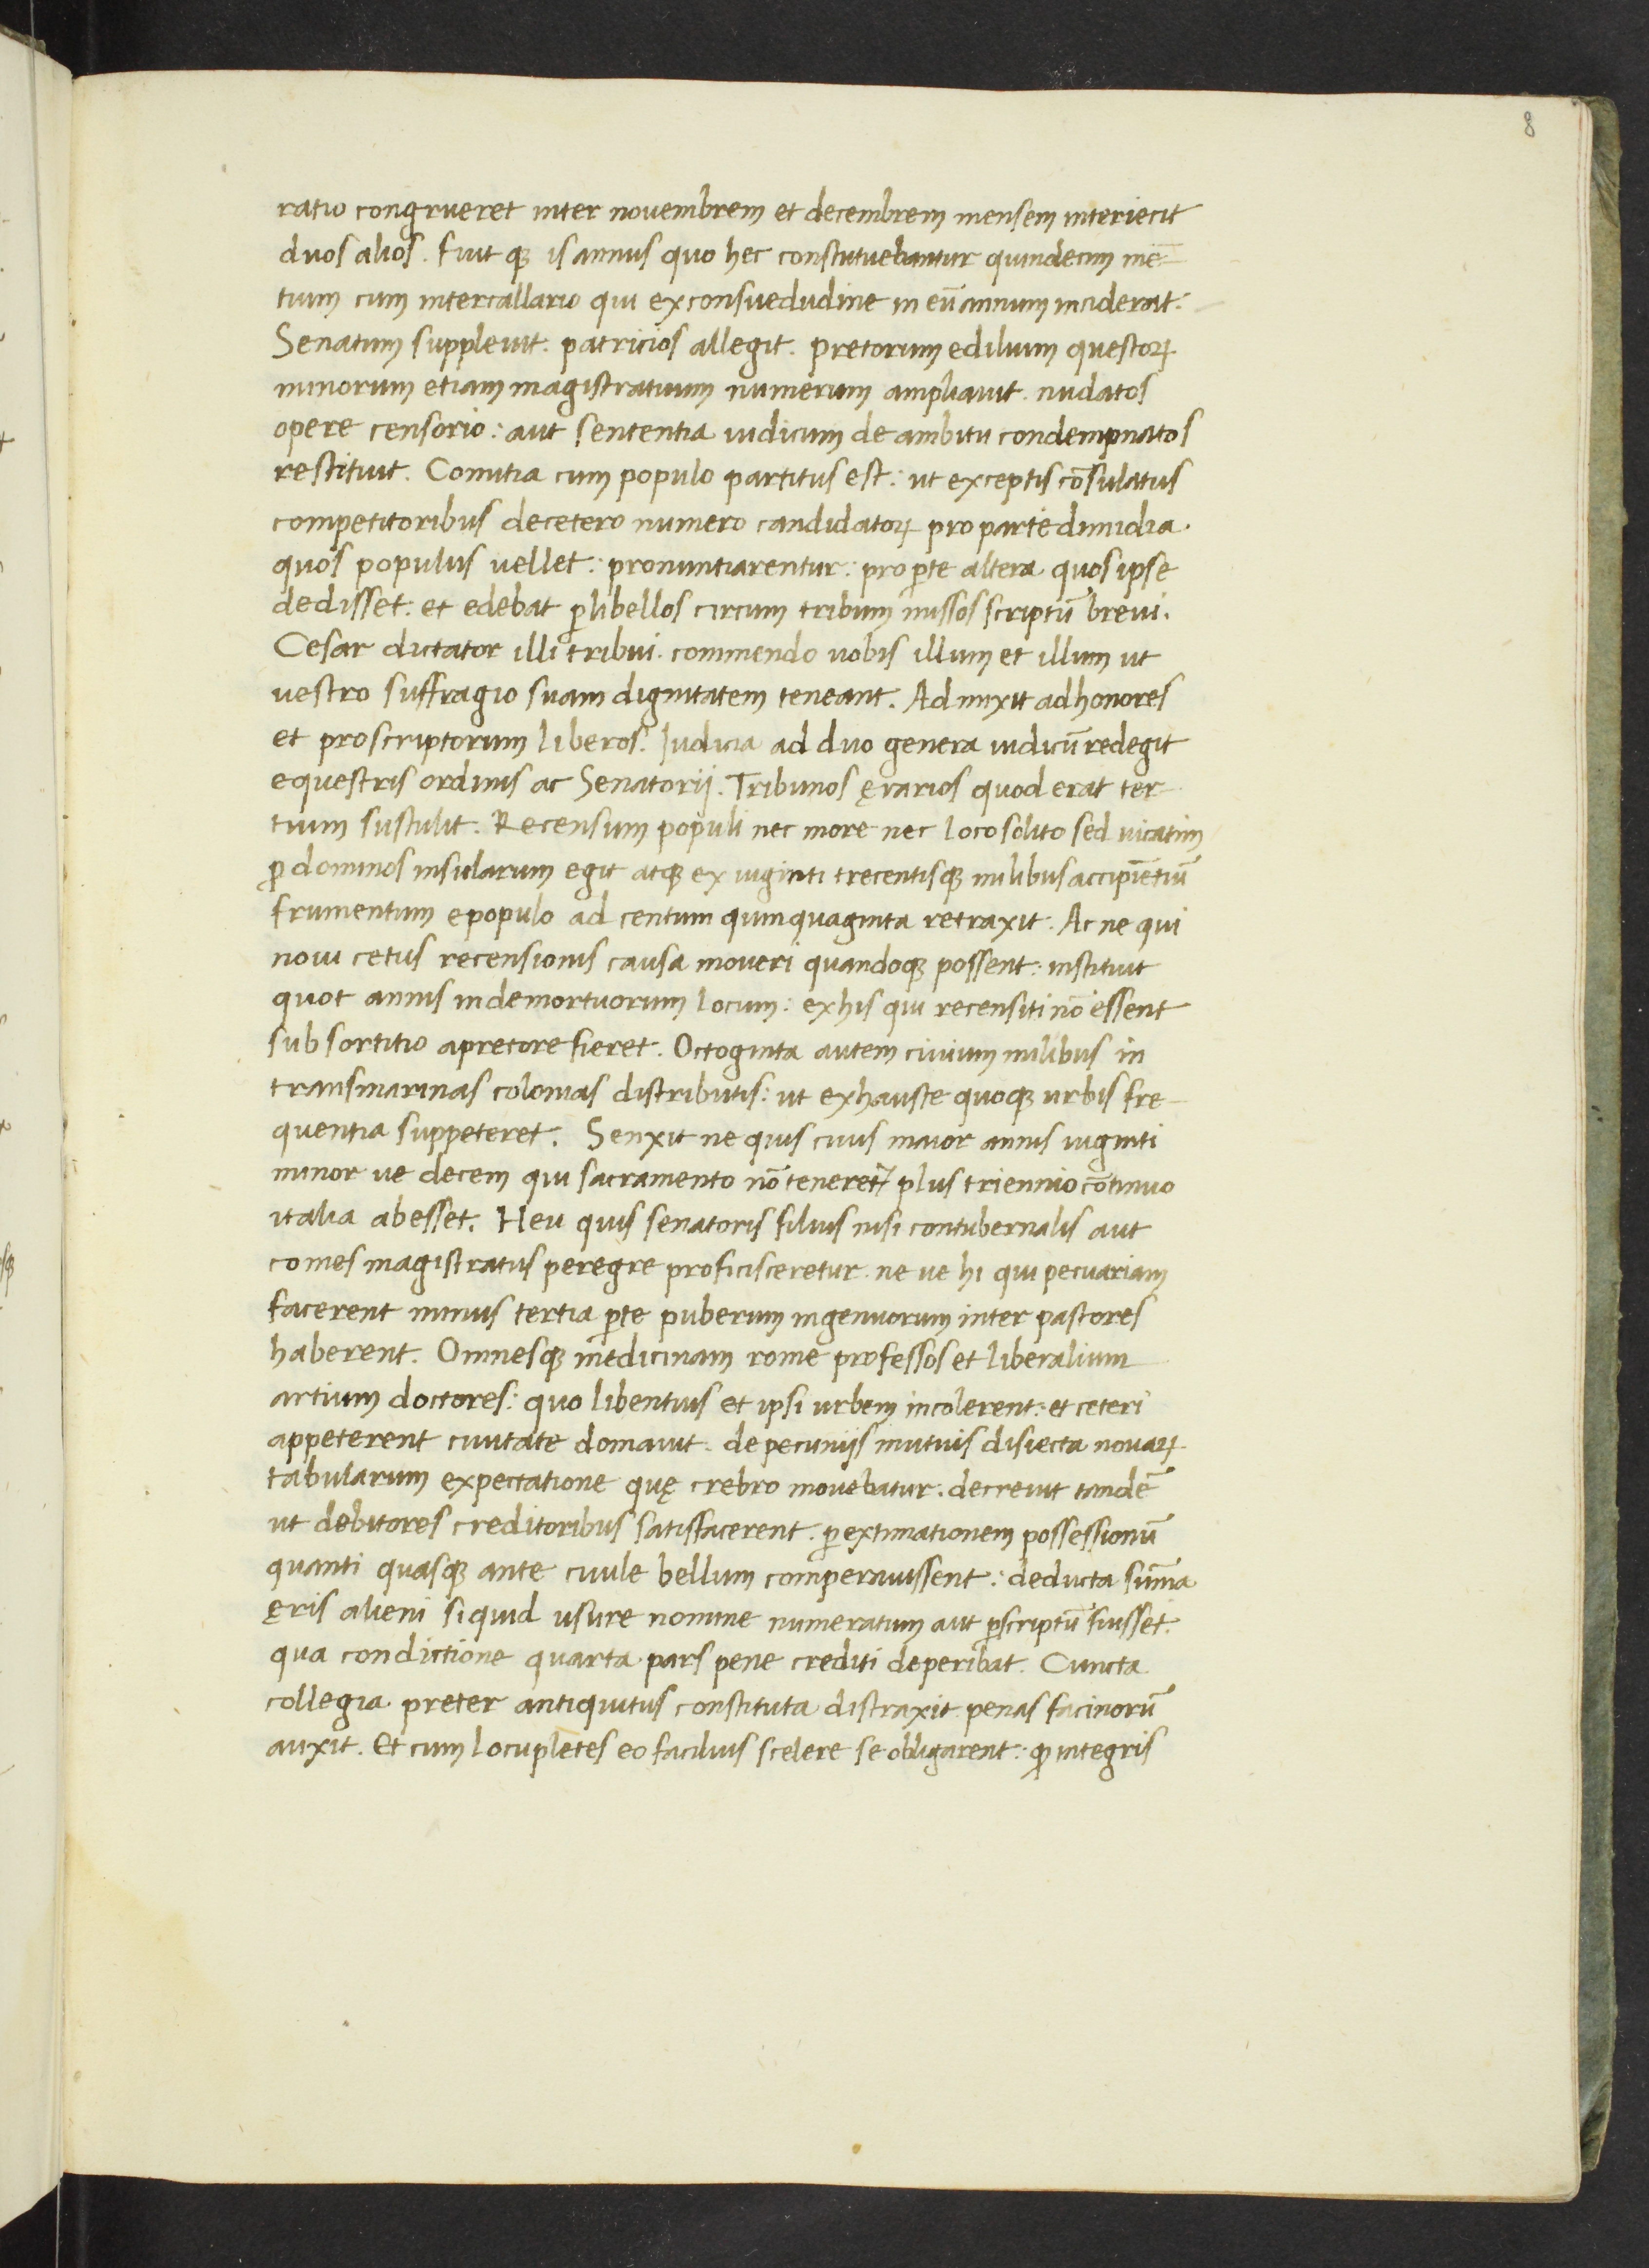 8
ratio congrueret inter nouembrem et decembrem mensem interiecit
duos alios. fuit qꝫ is annus quo hec constituebantur quindecim mē-
tium cum intercallario qui ex consuedudine in eū annum inciderat:
Senatum suppleuit: patricios allegit. pretorum edilium questoꝝ
minorum etiam magistratuum numerum ampliauit. nudatos
opere censorio: aut sententia iudicum de ambitu condempnatos
restituit. Comitia cum populo partitus est: ut exceptis cōsulatus
competitoribus decetero numero candidatoꝝ pro parte dimidia.
quos populus uellet: pronuntiarentur: pro ꝑte altera quos ipse
dedisset: et edebat ꝑ libellos circum tribum missos scriptū breui.
Cesar dictator illi tribui. commendo uobis illum et illum ut
uestro suffragio suam dignitatem teneant. Admixit ad honores
et proscriptorum liberos. Iudicia ad duo genera iudicū redegit
equestris ordinis ac Senatorij. Tribunos ęrarios quod erat ter-
tium sustulit: Recensum populi nec more nec loco solito sed uicatim
ꝑ dominos insularum egit atqꝫ ex uiginti trecentisqꝫ milibus accipiētiū
frumentum e populo ad centum quinquaginta retraxit. Ac ne qui
noui cetus recensionis causa moueri quandoqꝫ possent: instituit
quot annis in demortuorum locum: ex his qui recensiti nō essent
subsortitio apretore fieret. Octoginta autem ciuium milibus in
transmarinas colonias distributis: ut exhauste quoqꝫ urbis fre-
quentia suppeteret. Senxit ne quis ciuis maior annis uiginti
minor ue decem qui sacramento nō teneret᷑ plus triennio cōtinuo
italia abesset. Heu quis senatoris filius nisi contubernalis aut
comes magistratus peregre proficisceretur. ne ue hi qui pecuariam
facerent minus tertia ꝑte puberum ingenuorum inter pastores
haberent. Omnesqꝫ medicinam rome professos et liberalium
artium doctores: quo libentius et ipsi urbem incolerent: et ceteri
appeterent ciuitate donauit. de pecunijs mutuis disiecta nouaꝝ
tabularum expectatione quę crebro mouebatur. decreuit tandē
ut debitores creditoribus satisfacerent. ꝑ extimationem possessionū
quanti quasqꝫ ante ciuile bellum comperauissent: deducta sūma
ęris alieni si quid usure nomine numeratum aut ꝑscriptū fuisset:
qua condictione quarta pars pene crediti deperibat. Cuncta
collegia preter antiquitus constituta distraxit penas facinorū
auxit. Et cum locupletes eo facilius scelere se obligarent: ꝙ integris